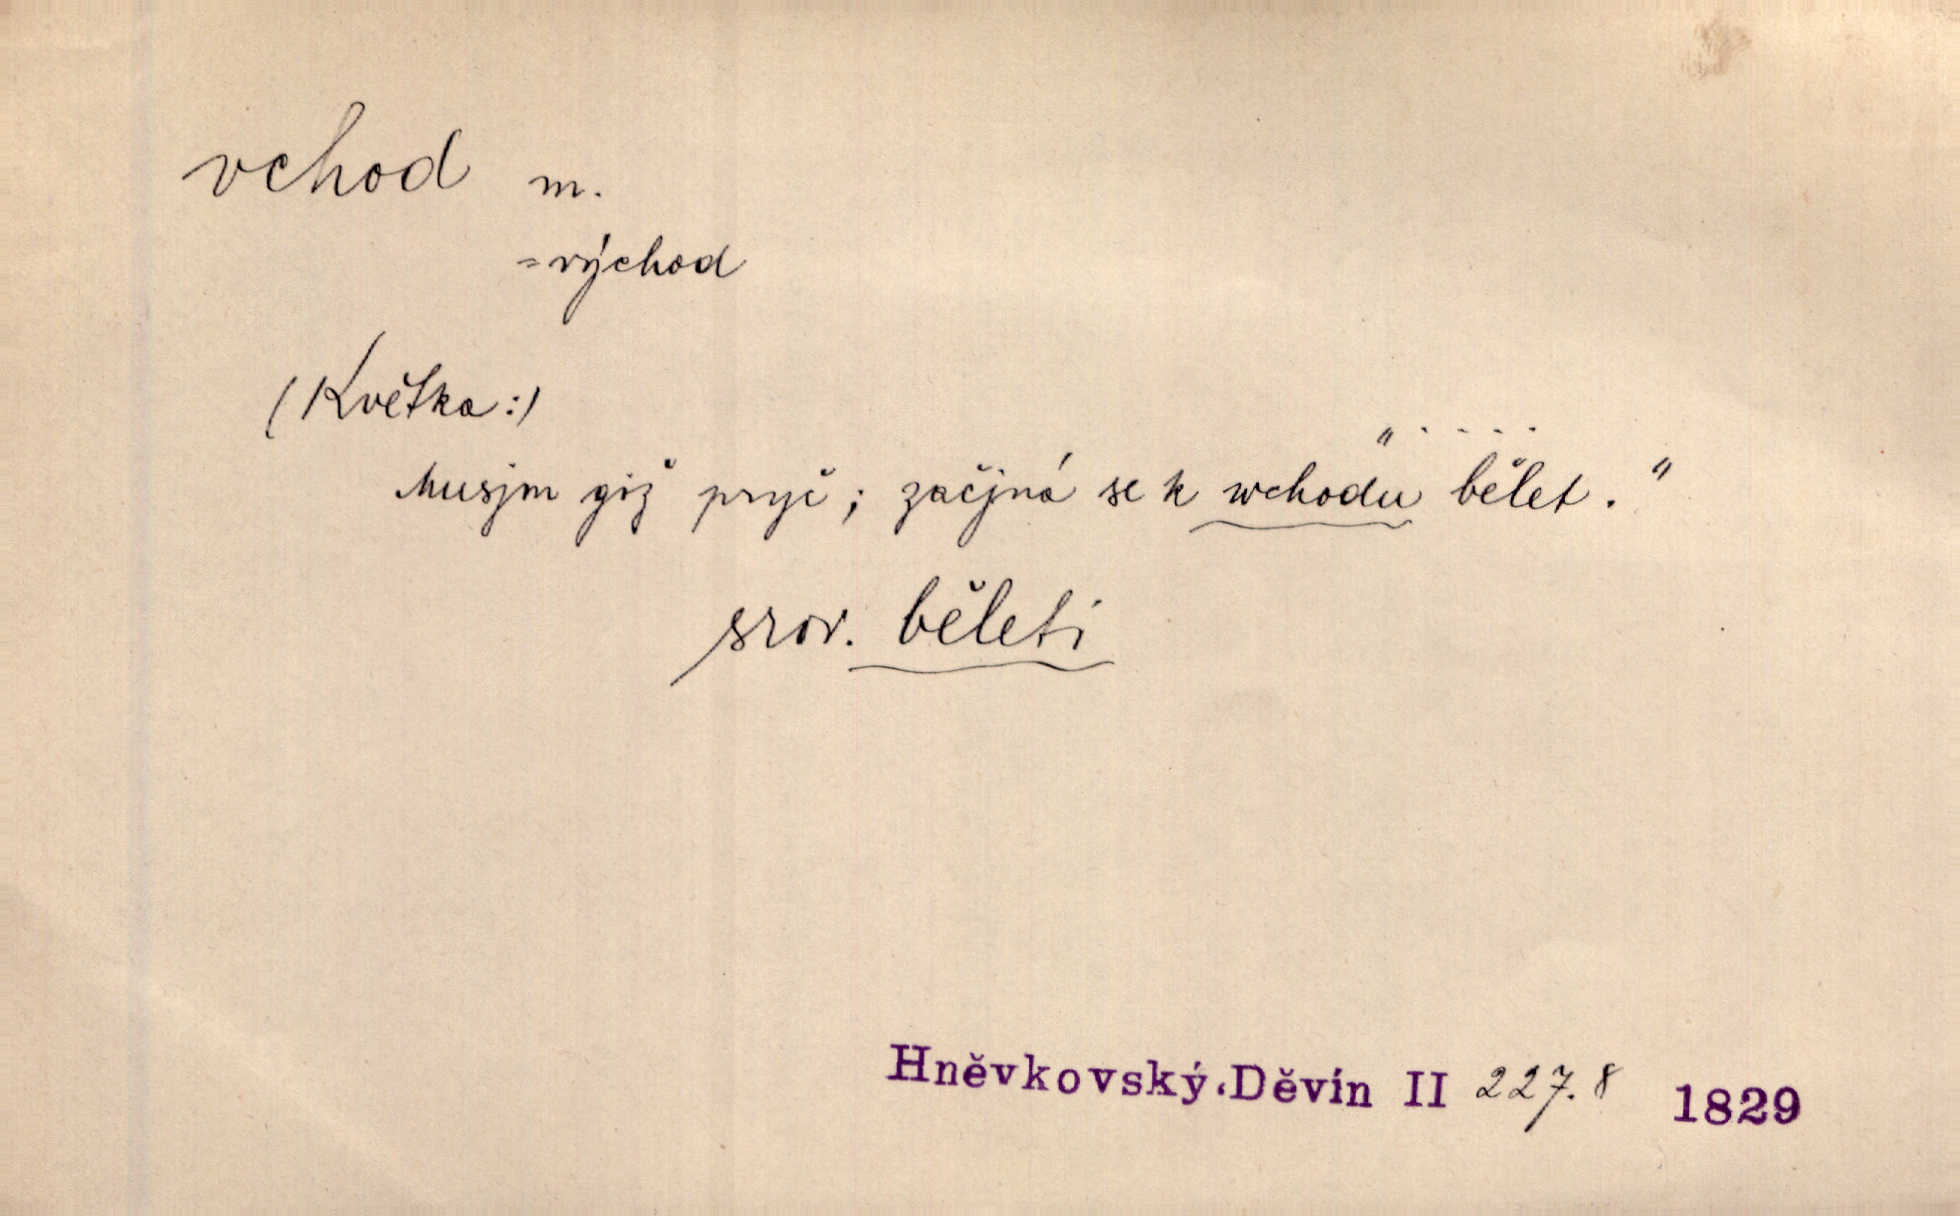 vchod m.
=východ
(Květka:)
„ . . . .
Musjm giž pryč; začjná se k wchodu bělet.“
srov. běleti
Hněvkovský.Děvín II 227.8 1829